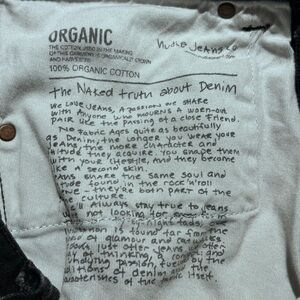 ORGANIC
THE COTTON USED IN THE MAKING
OF THIS GARMENT IS ORGANICALLY GROWN
AND HARVESTED
100% ORGANIC COTTON
Nudie Jeans co
the Naked truth about Denim
We LOVE JEANS, A PASSION WE SHARE
with Anyone who MOURNS A WORN-OUT
PAIR LIKE the PASSING of a CLOSE friend.
No FABRIC AGES quite as beautifully
as Denim, the LONGER you WEAR your
JEANS, the more CHARACTER and
attitude they ACQUIRE. YOU SHAPE them
with your lifestyle, AND they become
like A second skin.
JEANS SHARE the same SOUL and
attitude found in the rock'n'roll
they're both part of the
culture.
we'll Always stay true to jeans
not looking for
is found far from the
of glamour and catwalks
just other jeans
of thinking, a
undying passion for the
traditions of denim and the
characteristics of the fabric itself.